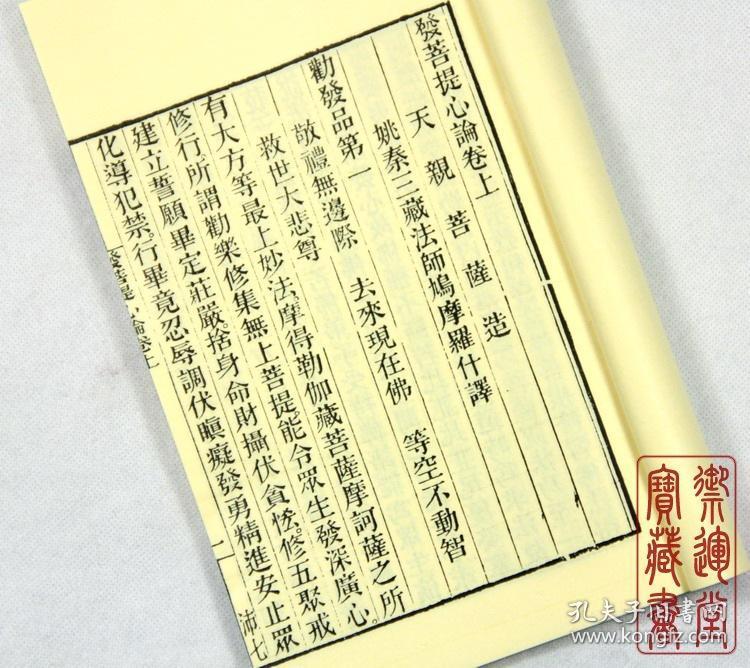 發菩提心論卷上
天親菩薩造
姚秦三藏法師鳩摩羅什譯
勸發品第一
敬禮無邊際 去來現在佛 等空不動智
救世大悲尊
有大方等最上妙法。摩得勒伽藏菩薩摩訶薩之所
修行。所謂勸樂修集無上菩提。能令眾生發深廣心。
建立誓願畢定莊嚴。捨身命財攝伏貪悋。修五聚戒
化導犯禁。行畢竟忍辱調伏瞋癡發勇精進安止眾
發菩提心論卷上 一 沛七
御運堂
寶藏書
孔夫子旧书网
www.kongfz.com